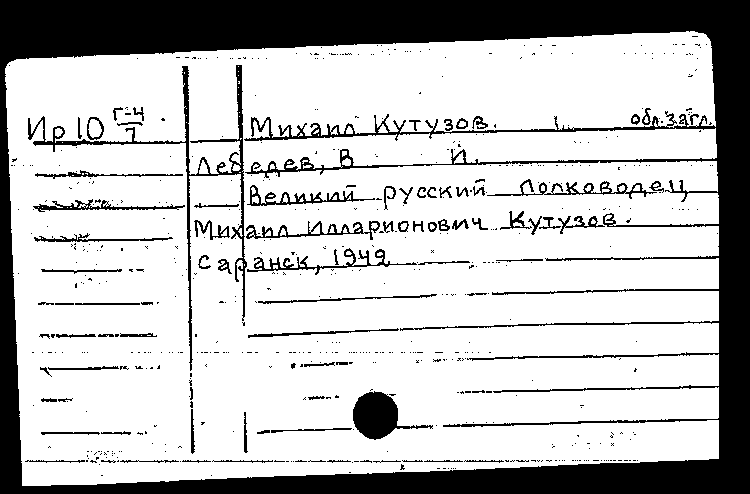 Ир 10 Г-4/7 Михаил Кутузов. обл.загл.
Лебедев, В И.
Великий русский полководец
Михаил Илларионович Кутузов.
Саранск, 1942